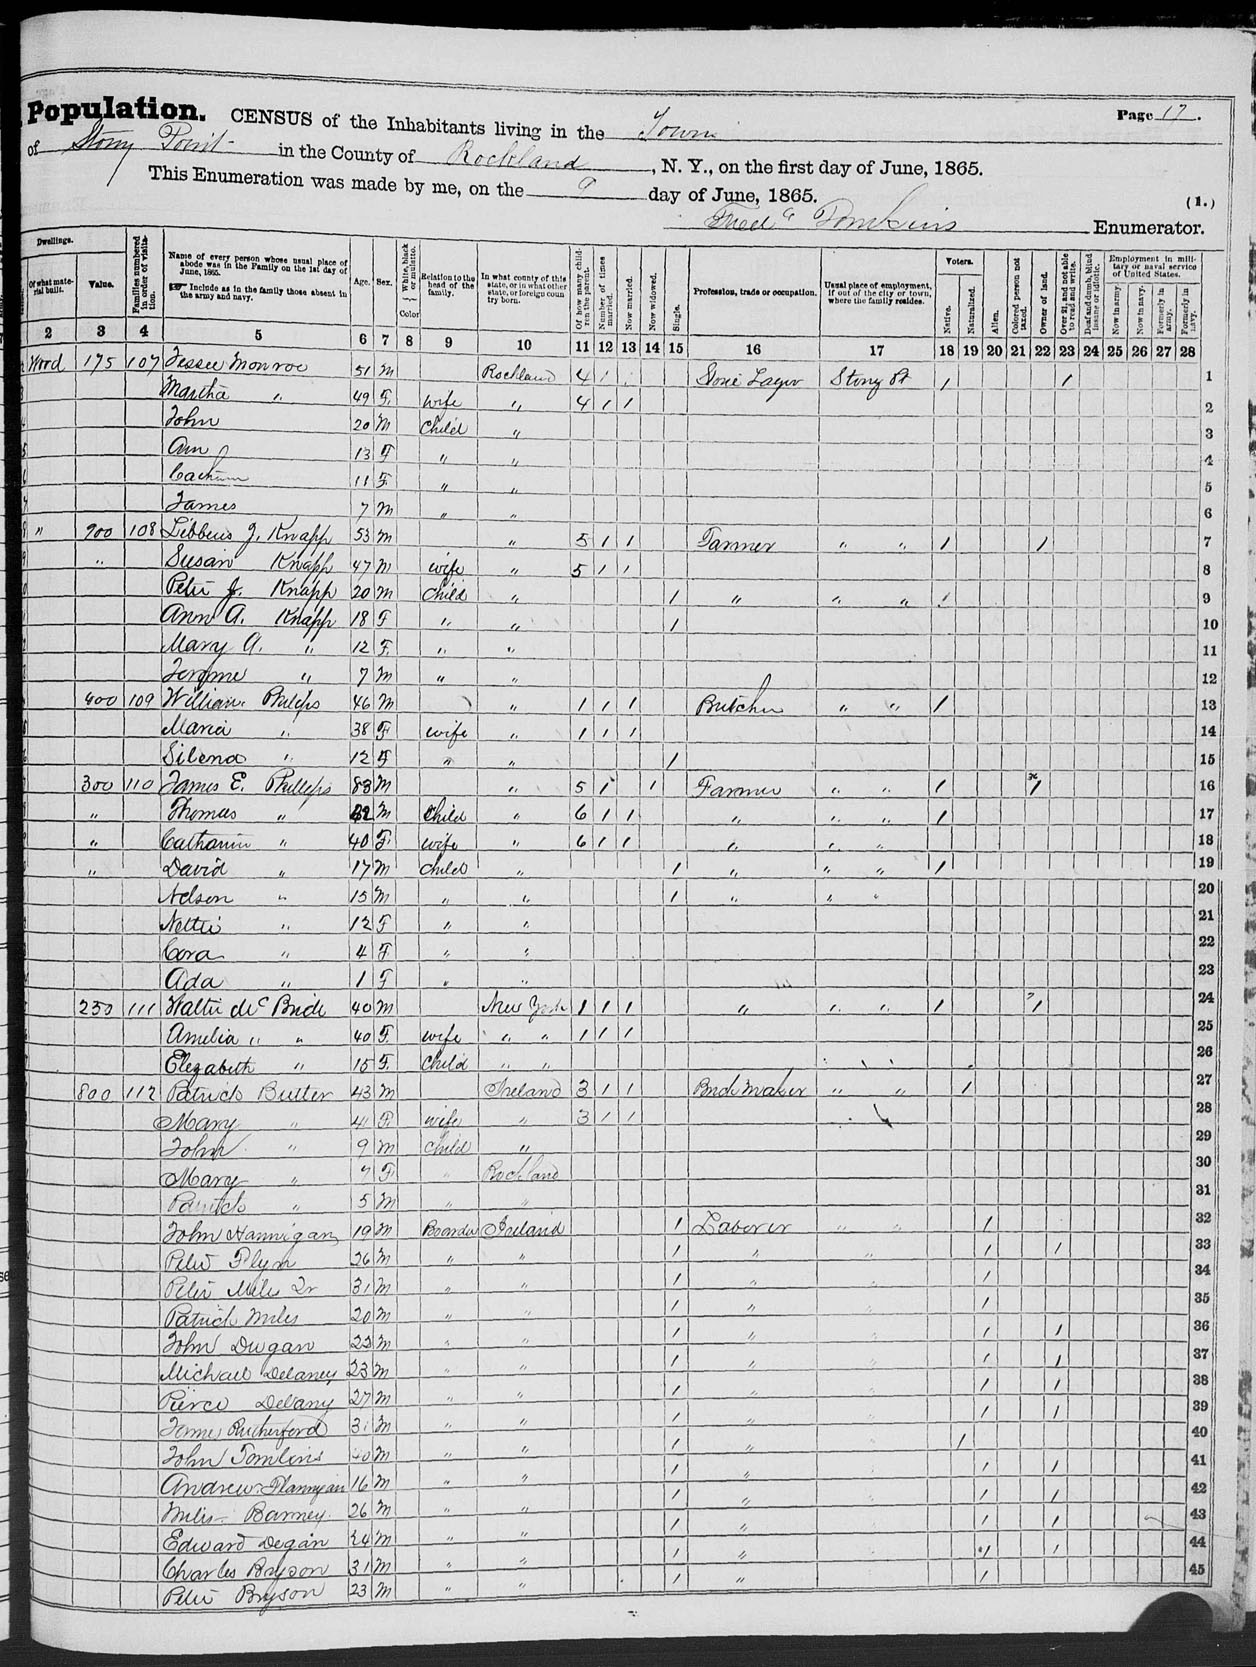 Population. CENSUS of the Inhabitants living in the Town Page 17.
of Stony Point in the County of Rockland, N. Y., on the first day of June, 1865.
This Enumeration was made by me, on the 9 day of June, 1865. (1.)
Fredc Tomkins Enumerator.
Dwellings. Of what material built. Value. Families numbered in order of visitation. Name of every person whose usual place of abode was in the Family on the 1st day of June, 1865. Include as in the family those absent in the army and navy. Age. Sex. White, black or mulatto. Color Relation to the head of the family. In what county of this state, or in what other state, or foreign country born. Of how many children the parent. Number of times married. Now married. Now widowed. Single. Profession, trade or occupation. Usual place of employment, if out of the city or town, where the family resides. Voters. Native. Naturalized. Alien. Colored person not taxed. Owner of land. Over 21, and not able to read and write. Deaf and dumb, blind insane or idiotic. Employment in military or naval service of United States. Now in army. Now in navy. Formerly in army. Formerly in navy.
2 3 4 5 6 7 8 9 10 11 12 13 14 15 16 17 18 19 20 21 22 23 24 25 26 27 28
Wood 175 107 Jessee Monroe 51 M Rockland 4 1 1 Stony Pt 1 1 1
Martha " 49 F. wife " 4 1 1 2
John 20 M Child " 3
Ann 13 F " " 4
11 F " " 5
James 7 M " " 6
" 900 108 Libbeus J. Knapp 53 M " 5 1 1 Farmer " " 1 1 7
" Susan Knapp 47 M wife " 5 1 1 8
Peter J. Knapp 20 M Child " 1 " " " 1 9
Ann A. Knapp 18 F " " 1 10
Mary A. " 12 F. " " 11
Jerome " 7 M " " 12
400 109 William Philips 46 M " 1 1 1 Butcher " " 1 13
Maria " 38 F wife " 1 1 1 14
Silena " 12 F " " 1 15
300 110 James E. Phillips 83 M " 5 1 1 Farmer " " 1 1 16
" Thomas " 42 M Child " 6 1 1 " " " 1 17
" Catharin " 40 F. wife " 6 1 1 " " " 18
" David " 17 M Child " 1 " " " 1 19
Nelson " 15 M " " 1 " " " 20
Nettie " 12 F " " 21
Cora " 4 F " " 22
Ada " 1 F " " 23
250 111 Walter Mc Bride 40 M New York 1 1 1 " " " 1 1 24
Amelia " " 40 F. wife " " 1 1 1 25
Elezabeth " 15 F. Child " " 26
800 112 Patrick Butler 43 M Ireland 3 1 1 Brick Maker " " 1 27
Mary " 41 F. wife " 3 1 1 28
John " 9 M Child " 29
Mary " 7 F. " Rockland 30
Patrick " 5 M " " 31
John Hannigan 19 M Boarder Ireland 1 Laborer " " 1 32
Peter Flynn 26 M " " 1 " " 1 1 33
Peter Miles Jr 31 M " " 1 " " 1 34
Patrick Miles 20 M " " 1 " " 1 35
John Dugan 22 M " " 1 " " 1 1 36
Michael Delaney 23 M " " 1 " " 1 1 37
Pierce Delany 27 M " " 1 " " 1 1 38
Rutherford M " " 1 " " 1 1 39
John Tomlins 40 M " " 1 " " 1 40
Andrew Flannigan 16 M " " 1 " 1 1 41
Miles Barney 26 M " " 1 " 1 1 42
Edward Degan 24 M " " 1 " 1 1 43
Charles Bryson 31 M " " 1 " 1 1 44
Peter Bryson 23 M " " 1 " 1 45